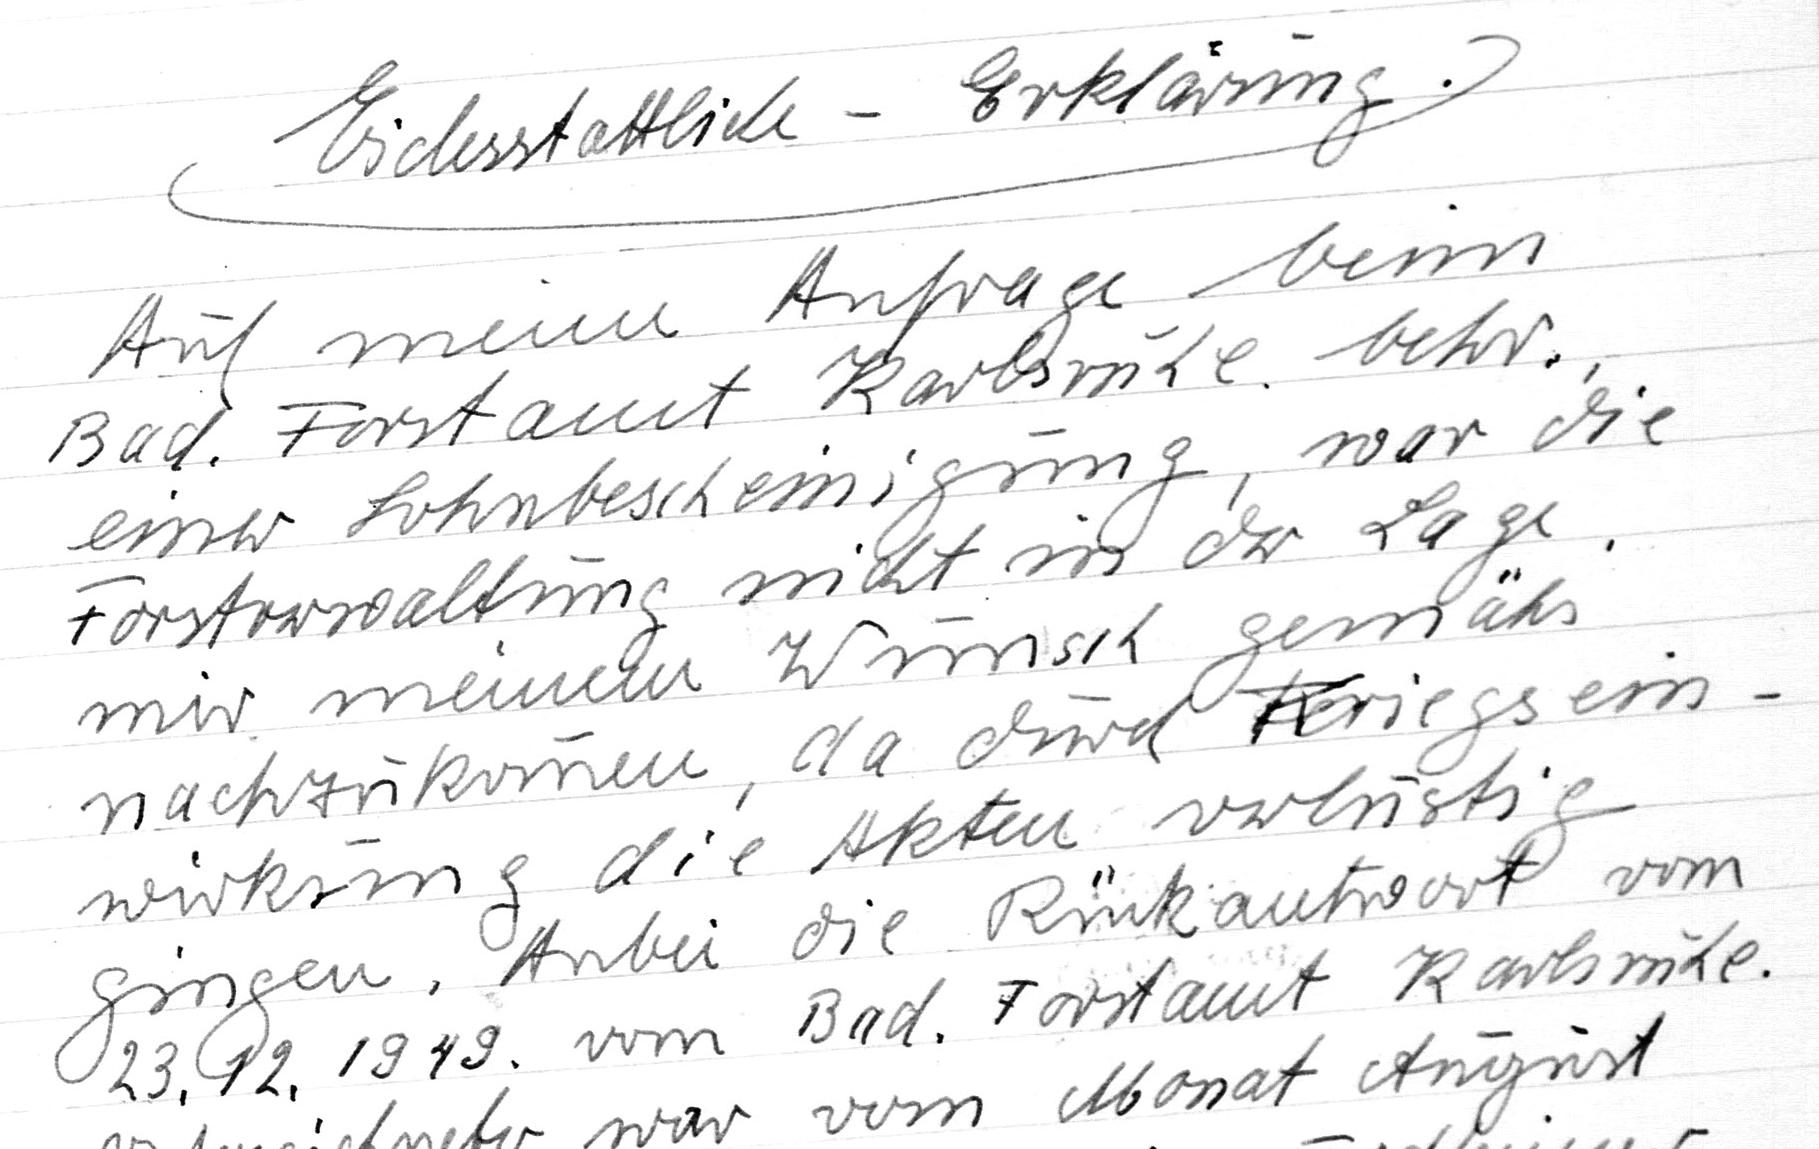 Eidesstattliche - Erklärung.
Auf meine Anfrage beim
Bad. Forstamt Karlsruhe. betr.,
einer Lohnbescheinigung, war die
Forstverwaltung nicht in der Lage.
mir meinem Wunsch gemähs
nachzukom̄en, da durch Kriegsein-
wirkung die Akten verlustig
gingen. Anbei die Rückantwort vom
23.12.1949. vom Bad. Forstamt Karlsruhe.
war vom Monat August